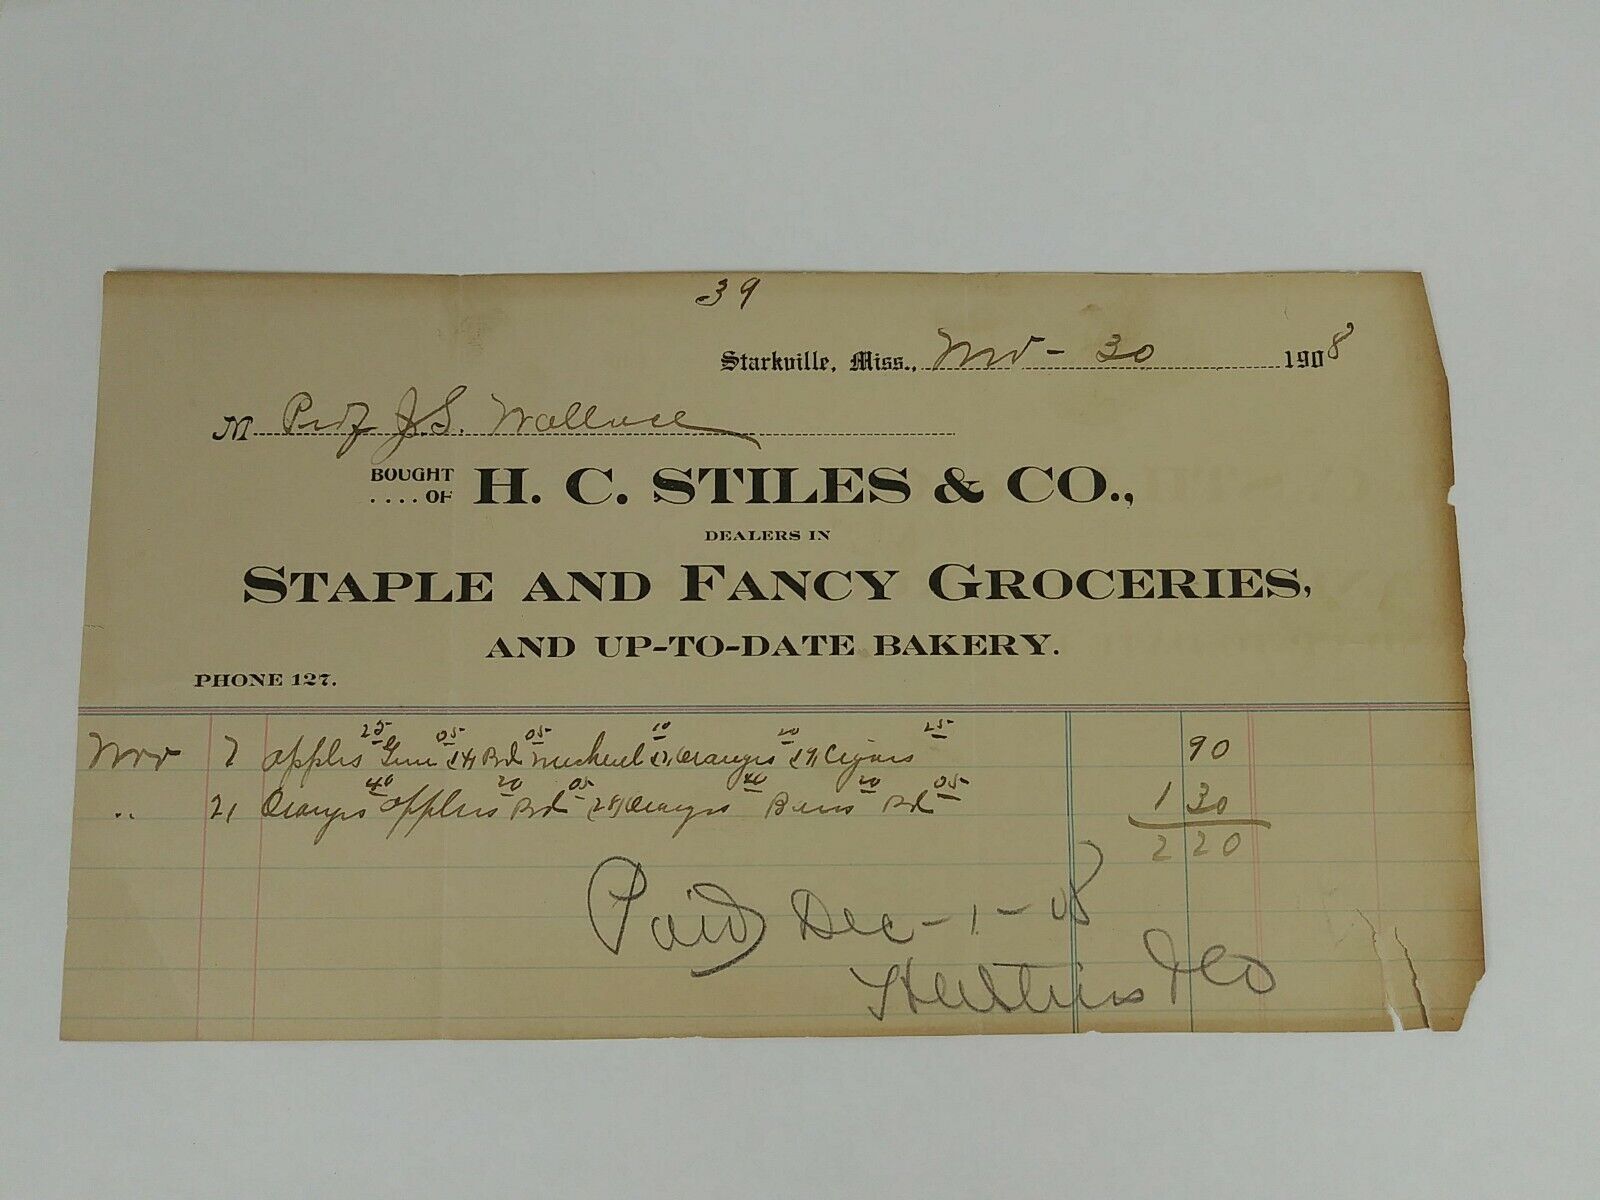 39
Starkville, Miss., Nov - 30 1908
M Prof J. S. Wallace
BOUGHT
.... OF H. C. STILES & CO.,
DEALERS IN
STAPLE AND FANCY GROCERIES,
AND UP-TO-DATE BAKERY.
PHONE 127.
Nov 7 Apples 25 Gum 05 (14) Brd 05 Mackerel 10 (17) Oranges 20 (19) Cigars 25 90
" 21 Oranges 40 Apples 20 Brd 05 (28) Oranges 40 Buns 20 Brd 05 1 30
2 20
Paid Dec - 1 - 08
H C Stiles & Co